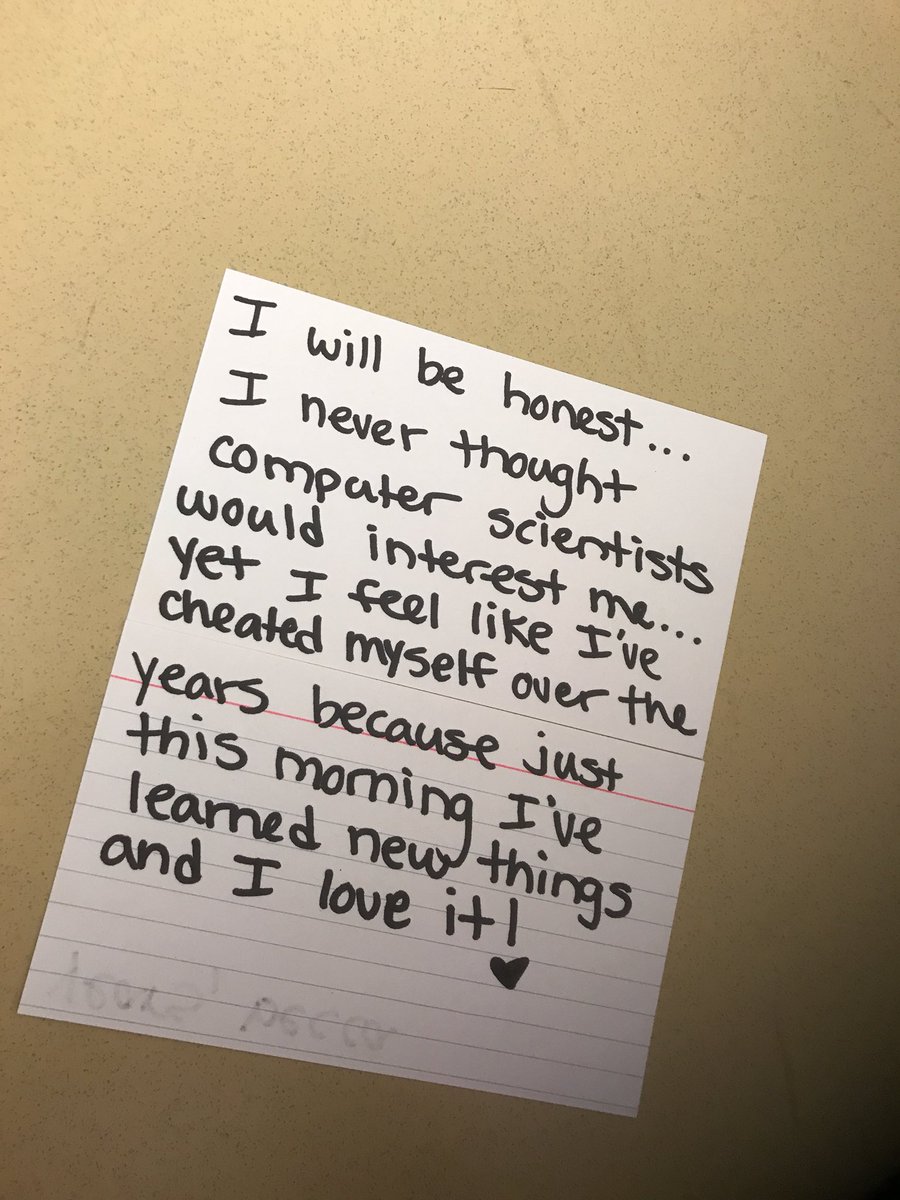 I will be honest...
I never thought
computer scientists
would interest me...
yet I feel like I've
cheated myself over the
years because just
this morning I've
learned new things
and I love it!